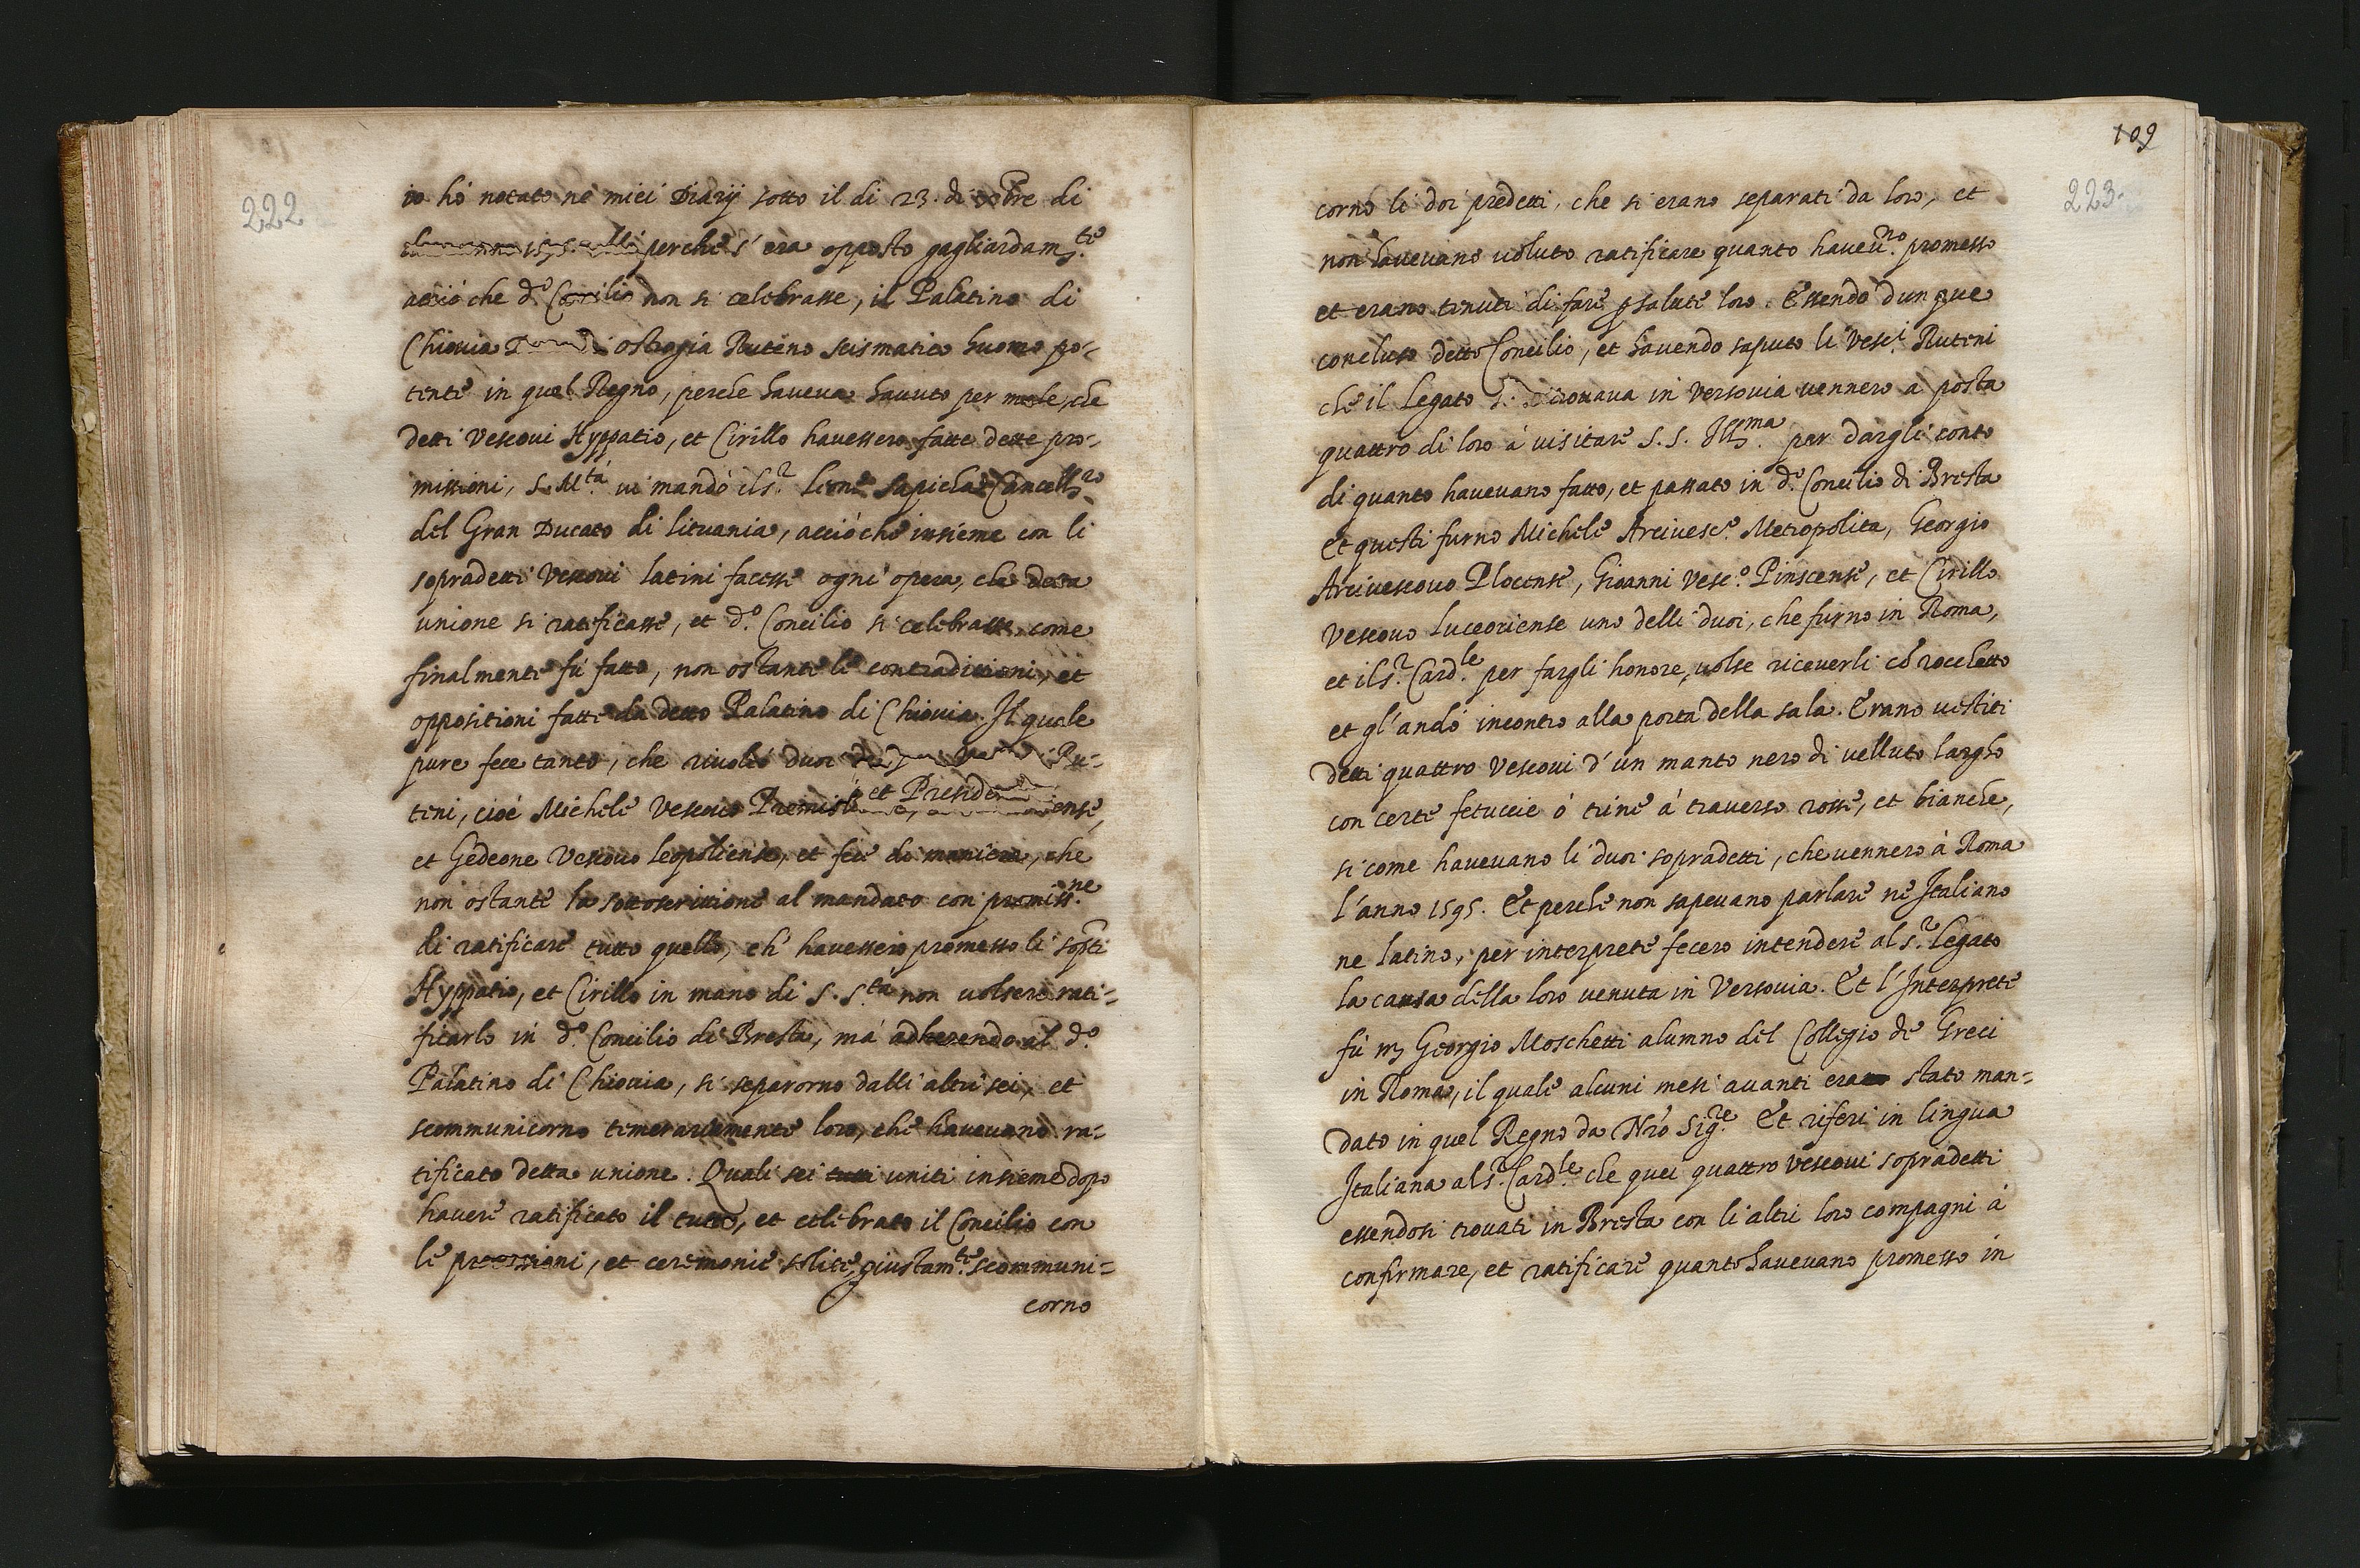 222
io hò notato ne miei Diarij sotto il di 23. di xbre di
perche s'era opposto gagliardam.te
acciò che d.o Concilio non si celebrasse, il Palatino di
Chiovia ostrogia Ruteno scismatico huomo po=
tente in quel Regno, perche haveva havuto per male, che
detti Vescovi Hyppatio, et Cirillo havessero fatte dette pro=
missioni, S. M.tà vi mandò il s.r Lione Sapieha Cancell.ro
del Gran Ducato di Lituania, acciò che insieme con li
sopradetti Vescovi latini facesse ogni opera, che detta
unione si ratificasse, et d.o Concilio si celebrasse, come
finalmente fù fatto, non ostante le contradittioni, et
oppositioni fatte da detto Palatino di Chiovia. Il quale
pure fece tanto, che rivoltò duoi Ru=
teni, cioè Michele Vescovo et
et Gedeone Vescovo leopoliense, et fece di maniera, che
non ostante la sottoscrittione al mandato con promiss.ne
di ratificare tutto quello, ch' havessero promesso li sop.ti
Hyppatio, et Cirillo in mano di S. S.tà non volsero rati=
ficarlo in d.o Concilio di Bresta, mà adherendo al d.o
Palatino di Chiovia, si separorno dalli altri sei, et
scommunicorno temerariamente loro, che havevano ra=
tificato detta unione. Quali sei tutti uniti insieme dopo
havere ratificato il tutto, et celebrato il Concilio con
le processioni, et ceremonie solite, giustam.te scommuni=
corno
109
223.
corno li doi predetti, che si erano separati da loro, et
non havevano voluto ratificare quanto havev.no promesso
et erano tenuti di fare p salute loro. Essendo dunque
concluso detto Concilio, et havendo saputo li Vesc.i Ruteni
che il Legato si ritrovava in Versovia vennero a posta
quattro di loro à visitare S. S. Ill.ma per dargli conto
di quanto havevano fatto, et passato in d.o Concilio di Bresta
Et questi furno Michele Arcivesc.o Metropolita, Georgio
Arcivescovo Plocense, Gioanni Vesc.o Pinscense, et Cirillo
Vescovo Luceoriense uno delli duoi, che furno in Roma,
et il s.r Card.le per fargli honore, volse riceverli cõ rocchetto
et gl'andò incontro alla porta della sala. Erano vestiti
detti quattro Vescovi d'un manto nero di velluto largho
con certe fetuccie ò trine à traverso rosse, et bianche,
si come havevano li duoi sopradetti, che vennero à Roma
l'anno 1595. Et perche non sapevano parlare ne Italiano
ne latino, per interprete fecero intendere al s.r Legato
la causa della loro venuta in Versovia. Et l'Interprete
fù m Georgio Moschetti alumno del Collegio de Greci
in Roma, il quale alcuni mesi avanti era stato man=
dato in quel Regno da Nrõ Sig.re Et riferì in lingua
Italiana al s.r Card.le che quei quattro Vescovi sopradetti
essendosi trovati in Bresta con li altri loro compagni à
confirmare, et ratificare quanto havevano promesso in